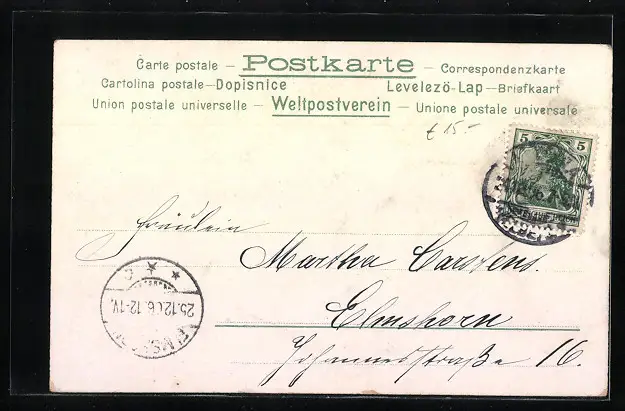 Carte postale – Postkarte – Correspondenzkarte
Cartolina postale – Dopisnice Levelezö-Lap – Briefkaart
Union postale universelle – Weltpostverein – Unione postale universale
£ 15.-
5 5
Fräulein
Martha Carstens.
Elmshorn
Johannesstraße 16.
25.12.06. 12-1V.